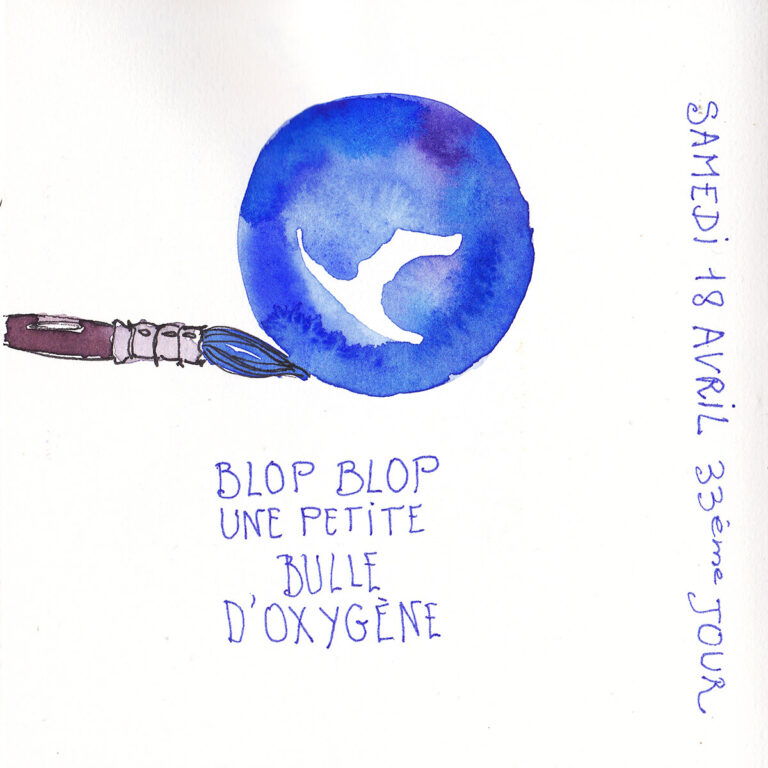 BLOP BLOP
UNE PETITE
BULLE
D'OXYGÈNE
SAMEDI 18 AVRIL 33ème JOUR